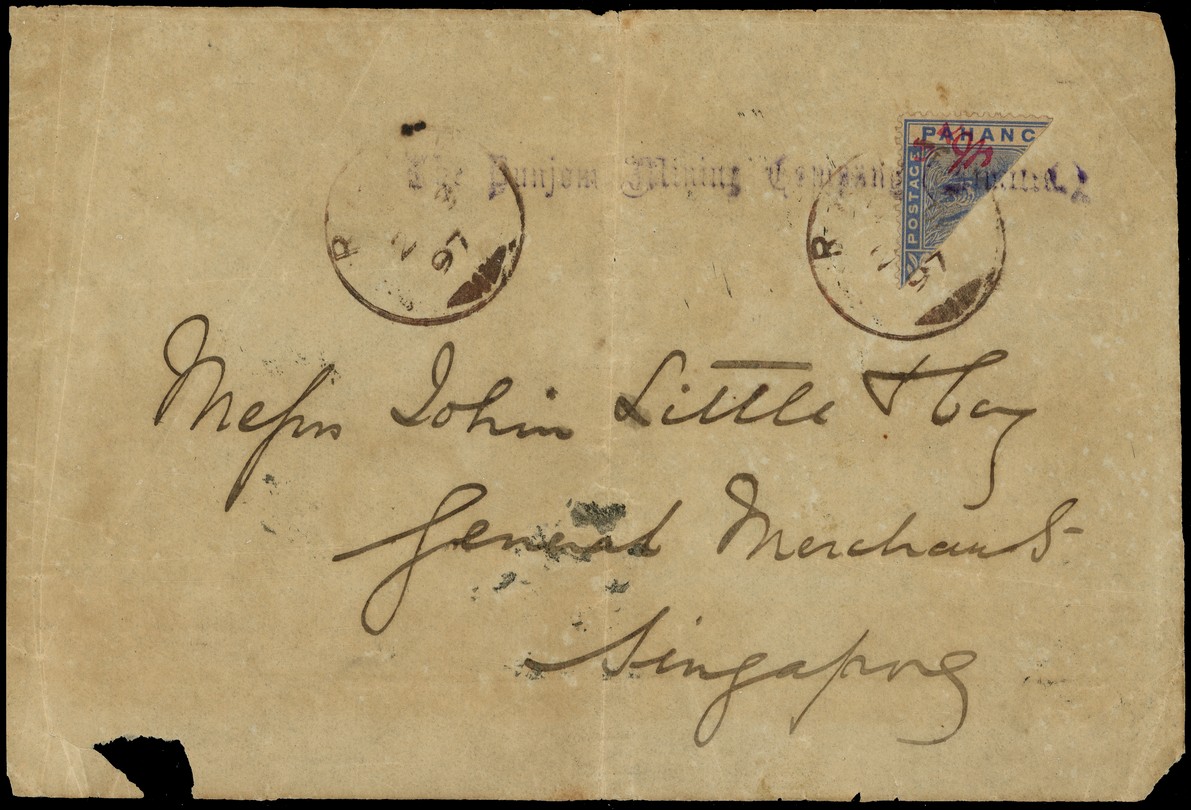 The Punjom Mining Company Limited
PAHANG
POSTAGE
R
2
97
R
2
97
Messrs John Little & Coy
General Merchants
Singapore